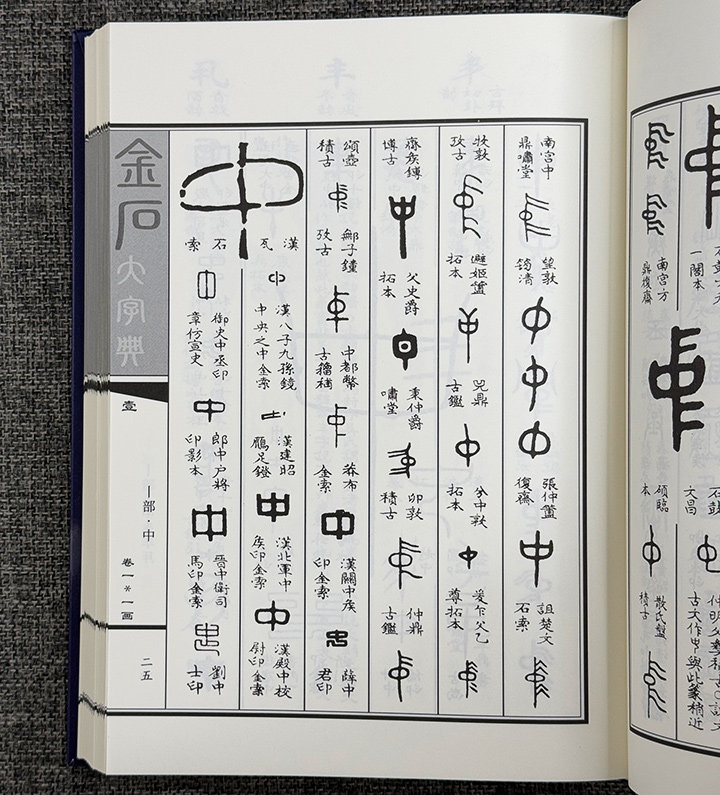 金石大字典
壹
丨部·中
卷一*一画
二五
一閣本
南宮方
鼎復齋
文昌
碩臨
本
散氏盤
積古
古文作中與此篆稍近
南宮中
鼎嘯堂
望敦
筠清
張仲簠
復齋
中
詛楚文
石索
牧敦
攷古
遲姬簠
拓本
兕鼎
古鑑
兮中敦
拓本
爰乍父乙
尊拓本
齋矦鎛
博古
父史爵
拓本
秉仲爵
嘯堂
卯敦
積古
仲鼎
古鑑
頌壺
積古
鄦子鐘
攷古
中都幣
古籀稱
莽布
金索
漢關中矦
印金索
薛中
君印
中
漢瓦石索
漢八子九孫鏡
中央之中金索
漢建昭
鴈足鐙
漢北軍中
矦印金索
漢殿中校
尉印金索
御史中丞印
章仿宣史
郎中户將
印影本
晉中衛司
馬印金索
劉中
士印